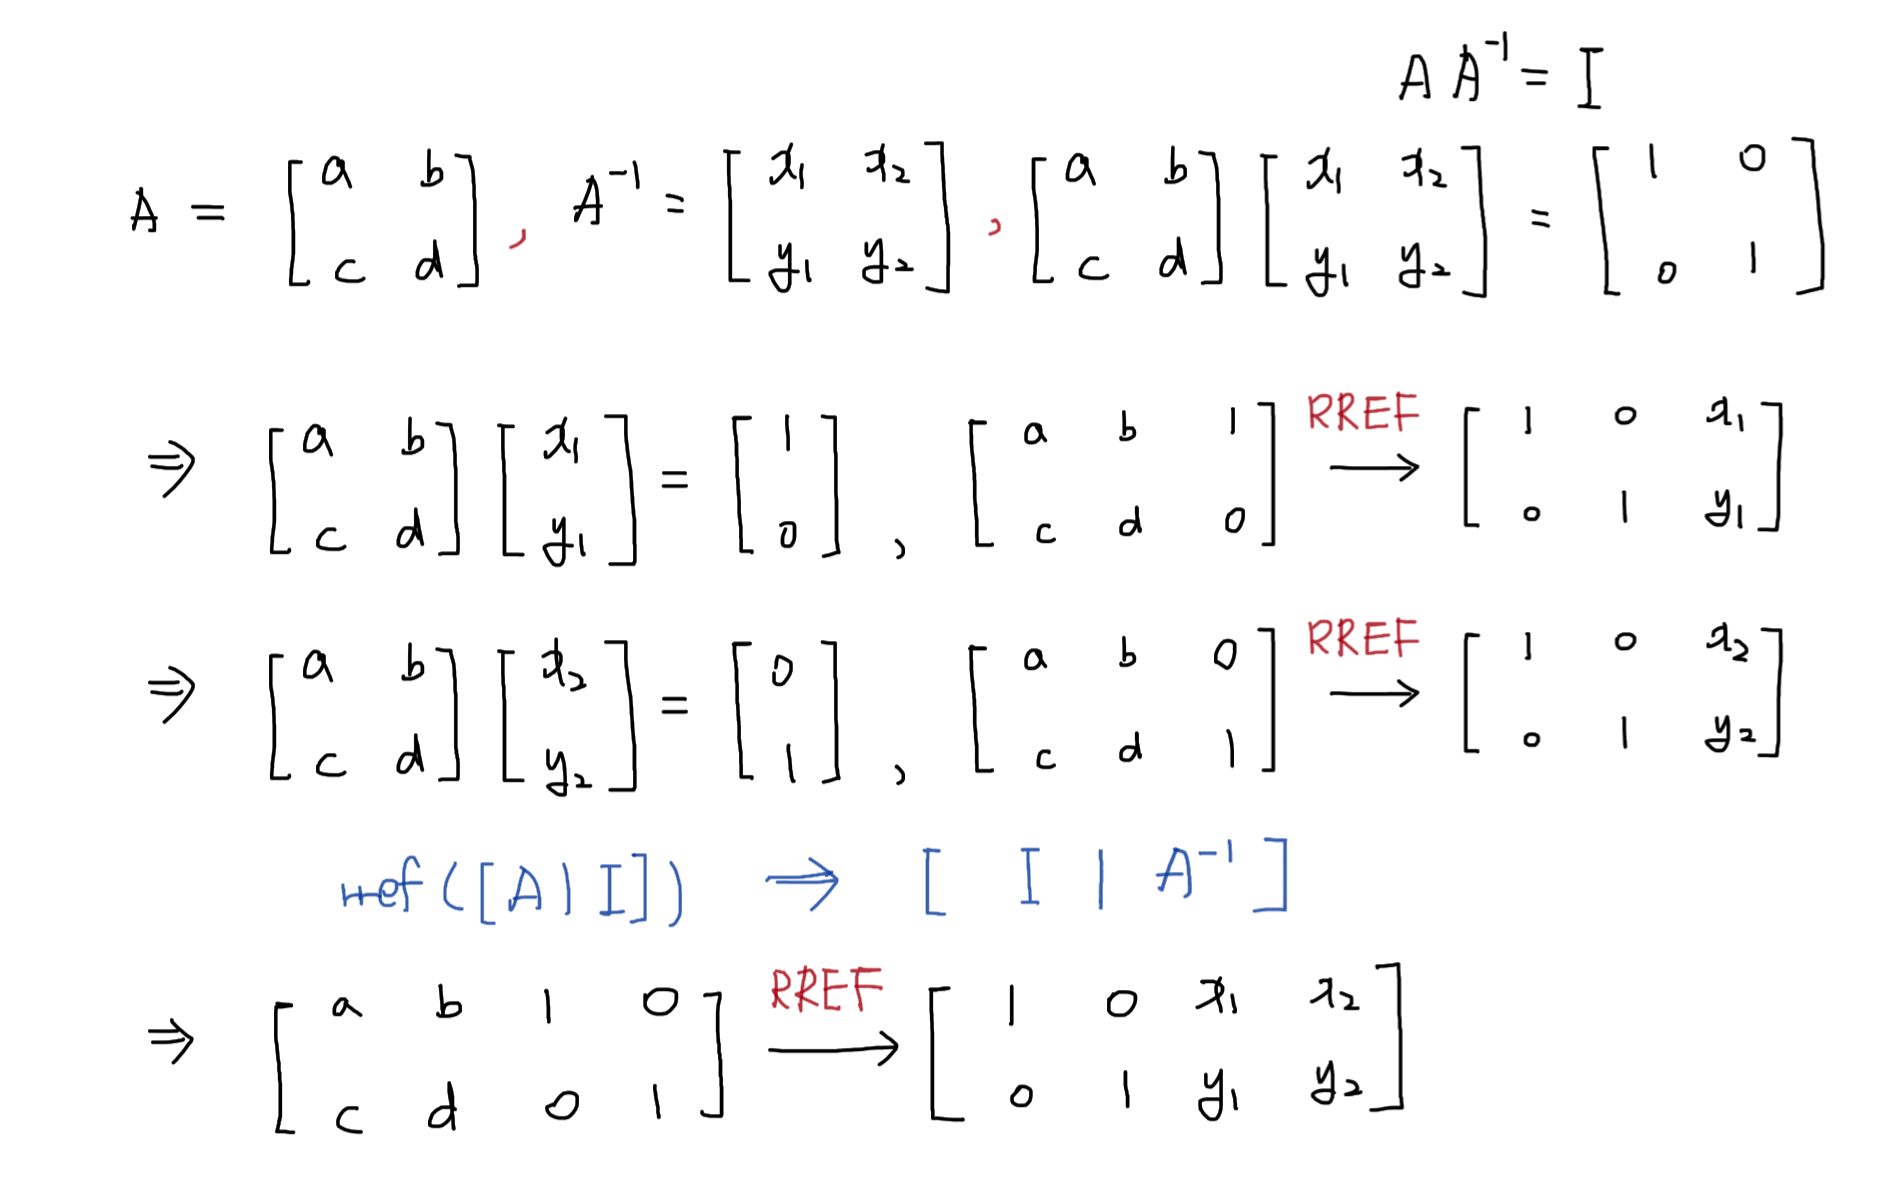 A A⁻¹ = I
A = [ a b ; c d ] , A⁻¹ = [ x₁ x₂ ; y₁ y₂ ] , [ a b ; c d ] [ x₁ x₂ ; y₁ y₂ ] = [ 1 0 ; 0 1 ]
⇒ [ a b ; c d ] [ x₁ ; y₁ ] = [ 1 ; 0 ] , [ a b 1 ; c d 0 ] RREF → [ 1 0 x₁ ; 0 1 y₁ ]
⇒ [ a b ; c d ] [ x₂ ; y₂ ] = [ 0 ; 1 ] , [ a b 0 ; c d 1 ] RREF → [ 1 0 x₂ ; 0 1 y₂ ]
rref ( [ A | I ] ) ⇒ [ I | A⁻¹ ]
⇒ [ a b 1 0 ; c d 0 1 ] RREF → [ 1 0 x₁ x₂ ; 0 1 y₁ y₂ ]